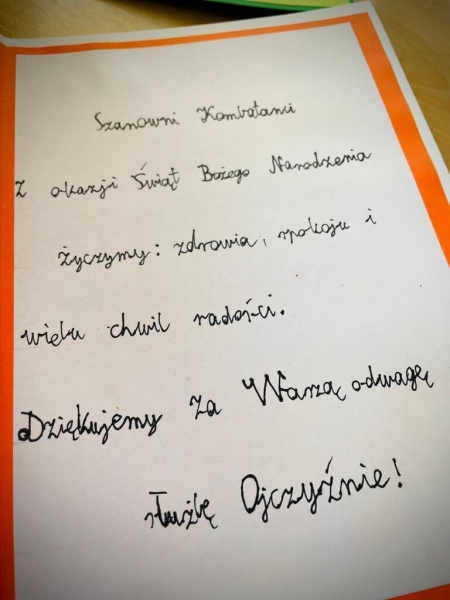 Szanowni Kombatanci
Z okazji Świąt Bożego Narodzenia
życzymy: zdrowia, spokoju i
wielu chwil radości.
Dziękujemy za Waszą odwagę
służbę Ojczyźnie!